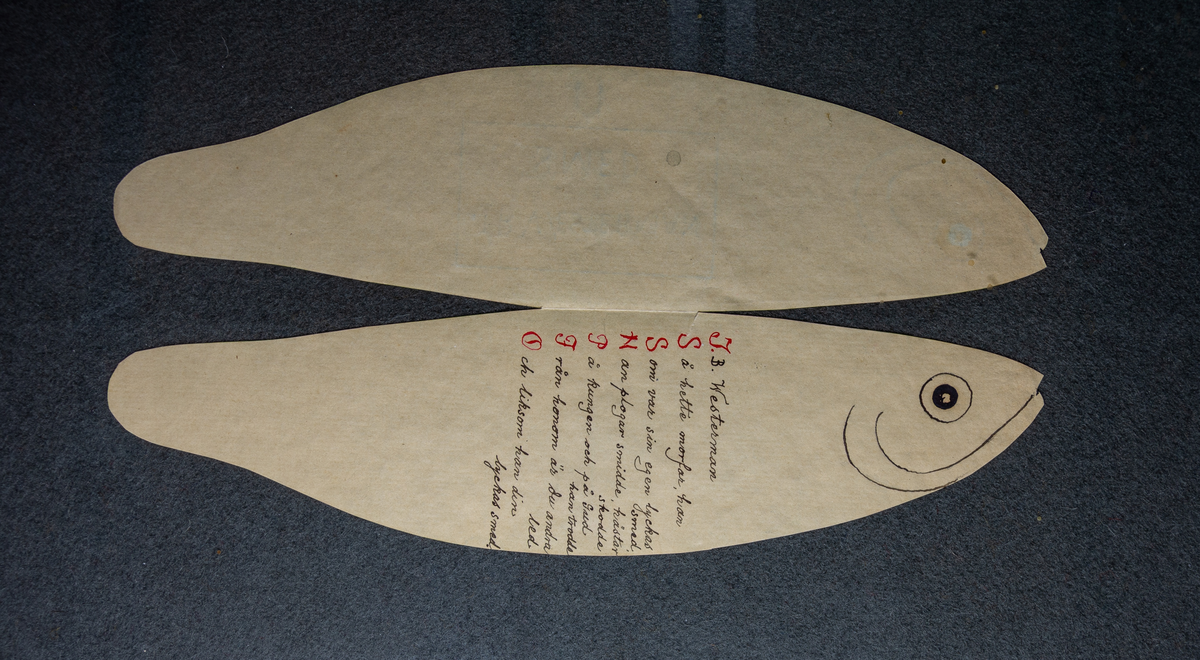 J. B. Westerman
Så hette morfar, han
Som var sin egen lyckas
smed.
Han plogar smidde, hästar
skodde
På kungen och på Gud
han trodde
Från honom är du andra
led
Och liksom han din
lyckas smed.